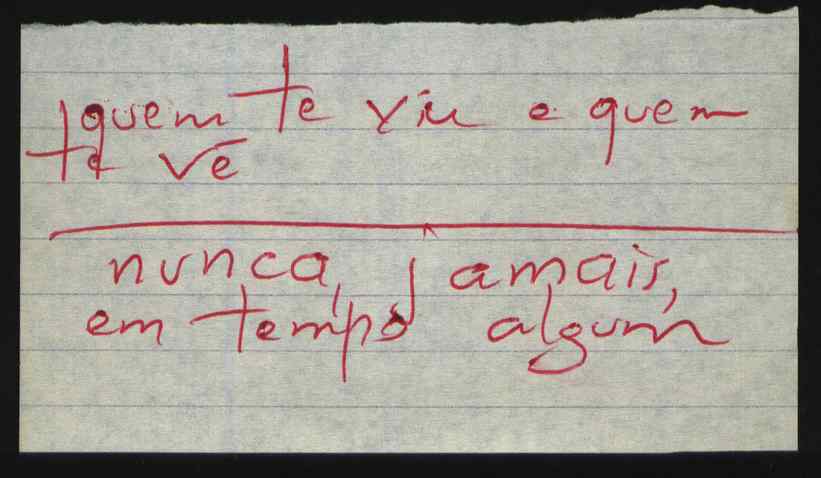 quem te viu e quem
te vê
nunca, jamais,
em tempo algum